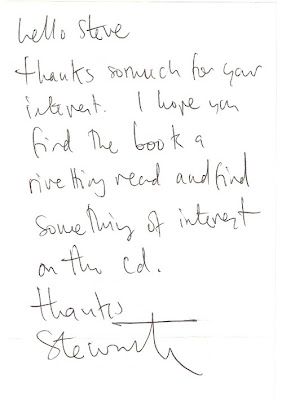 hello Steve
thanks somuch for your
interest. I hope you
find the book a
rivetting read and find
something of interest
on the cd.
thanks
Stewart